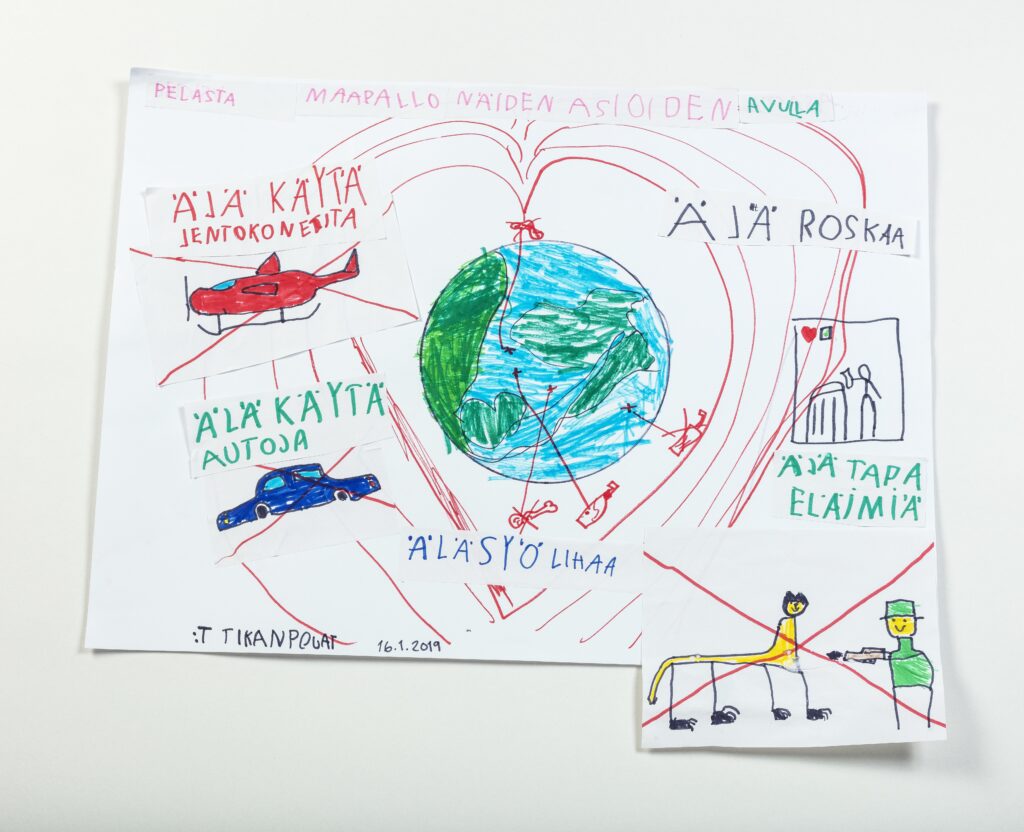 PELASTA MAAPALLO NÄIDEN ASIOIDEN AVULLA
ÄJÄ KÄYTÄ
JENTOKONEITA
ÄJÄ ROSKAA
ÄLÄ KÄYTÄ
AUTOJA
ÄJÄ TAPA
ELÄJMIÄ
ÄLÄ SYÖ LIHAA
:T TIKANPOJAT 16.1.2019